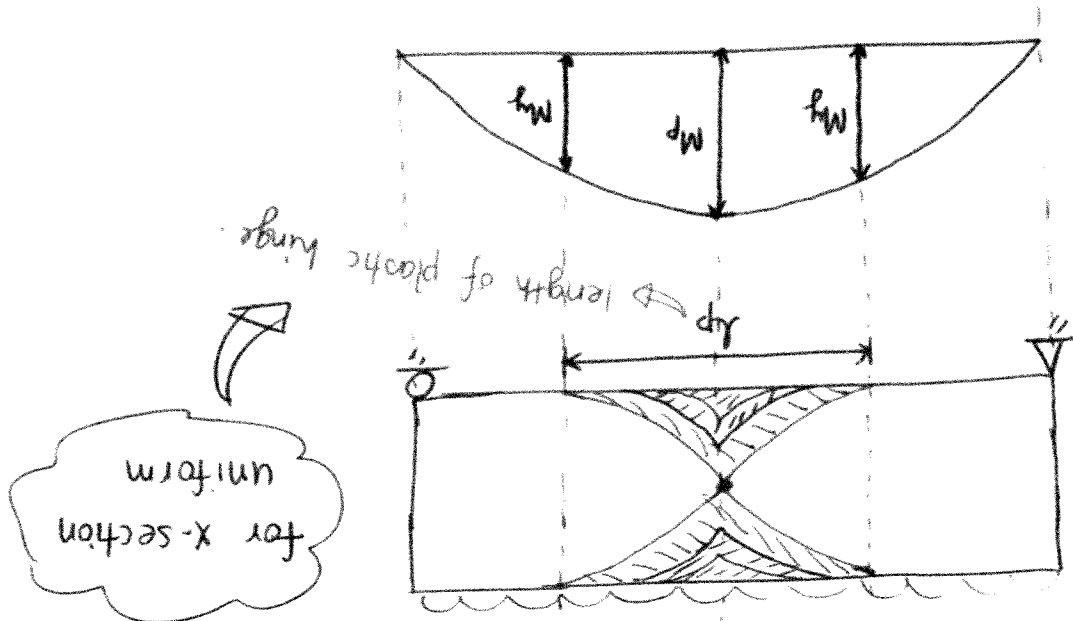 for x-section
uniform
lp
length of plastic hinge.
My
Mp
My